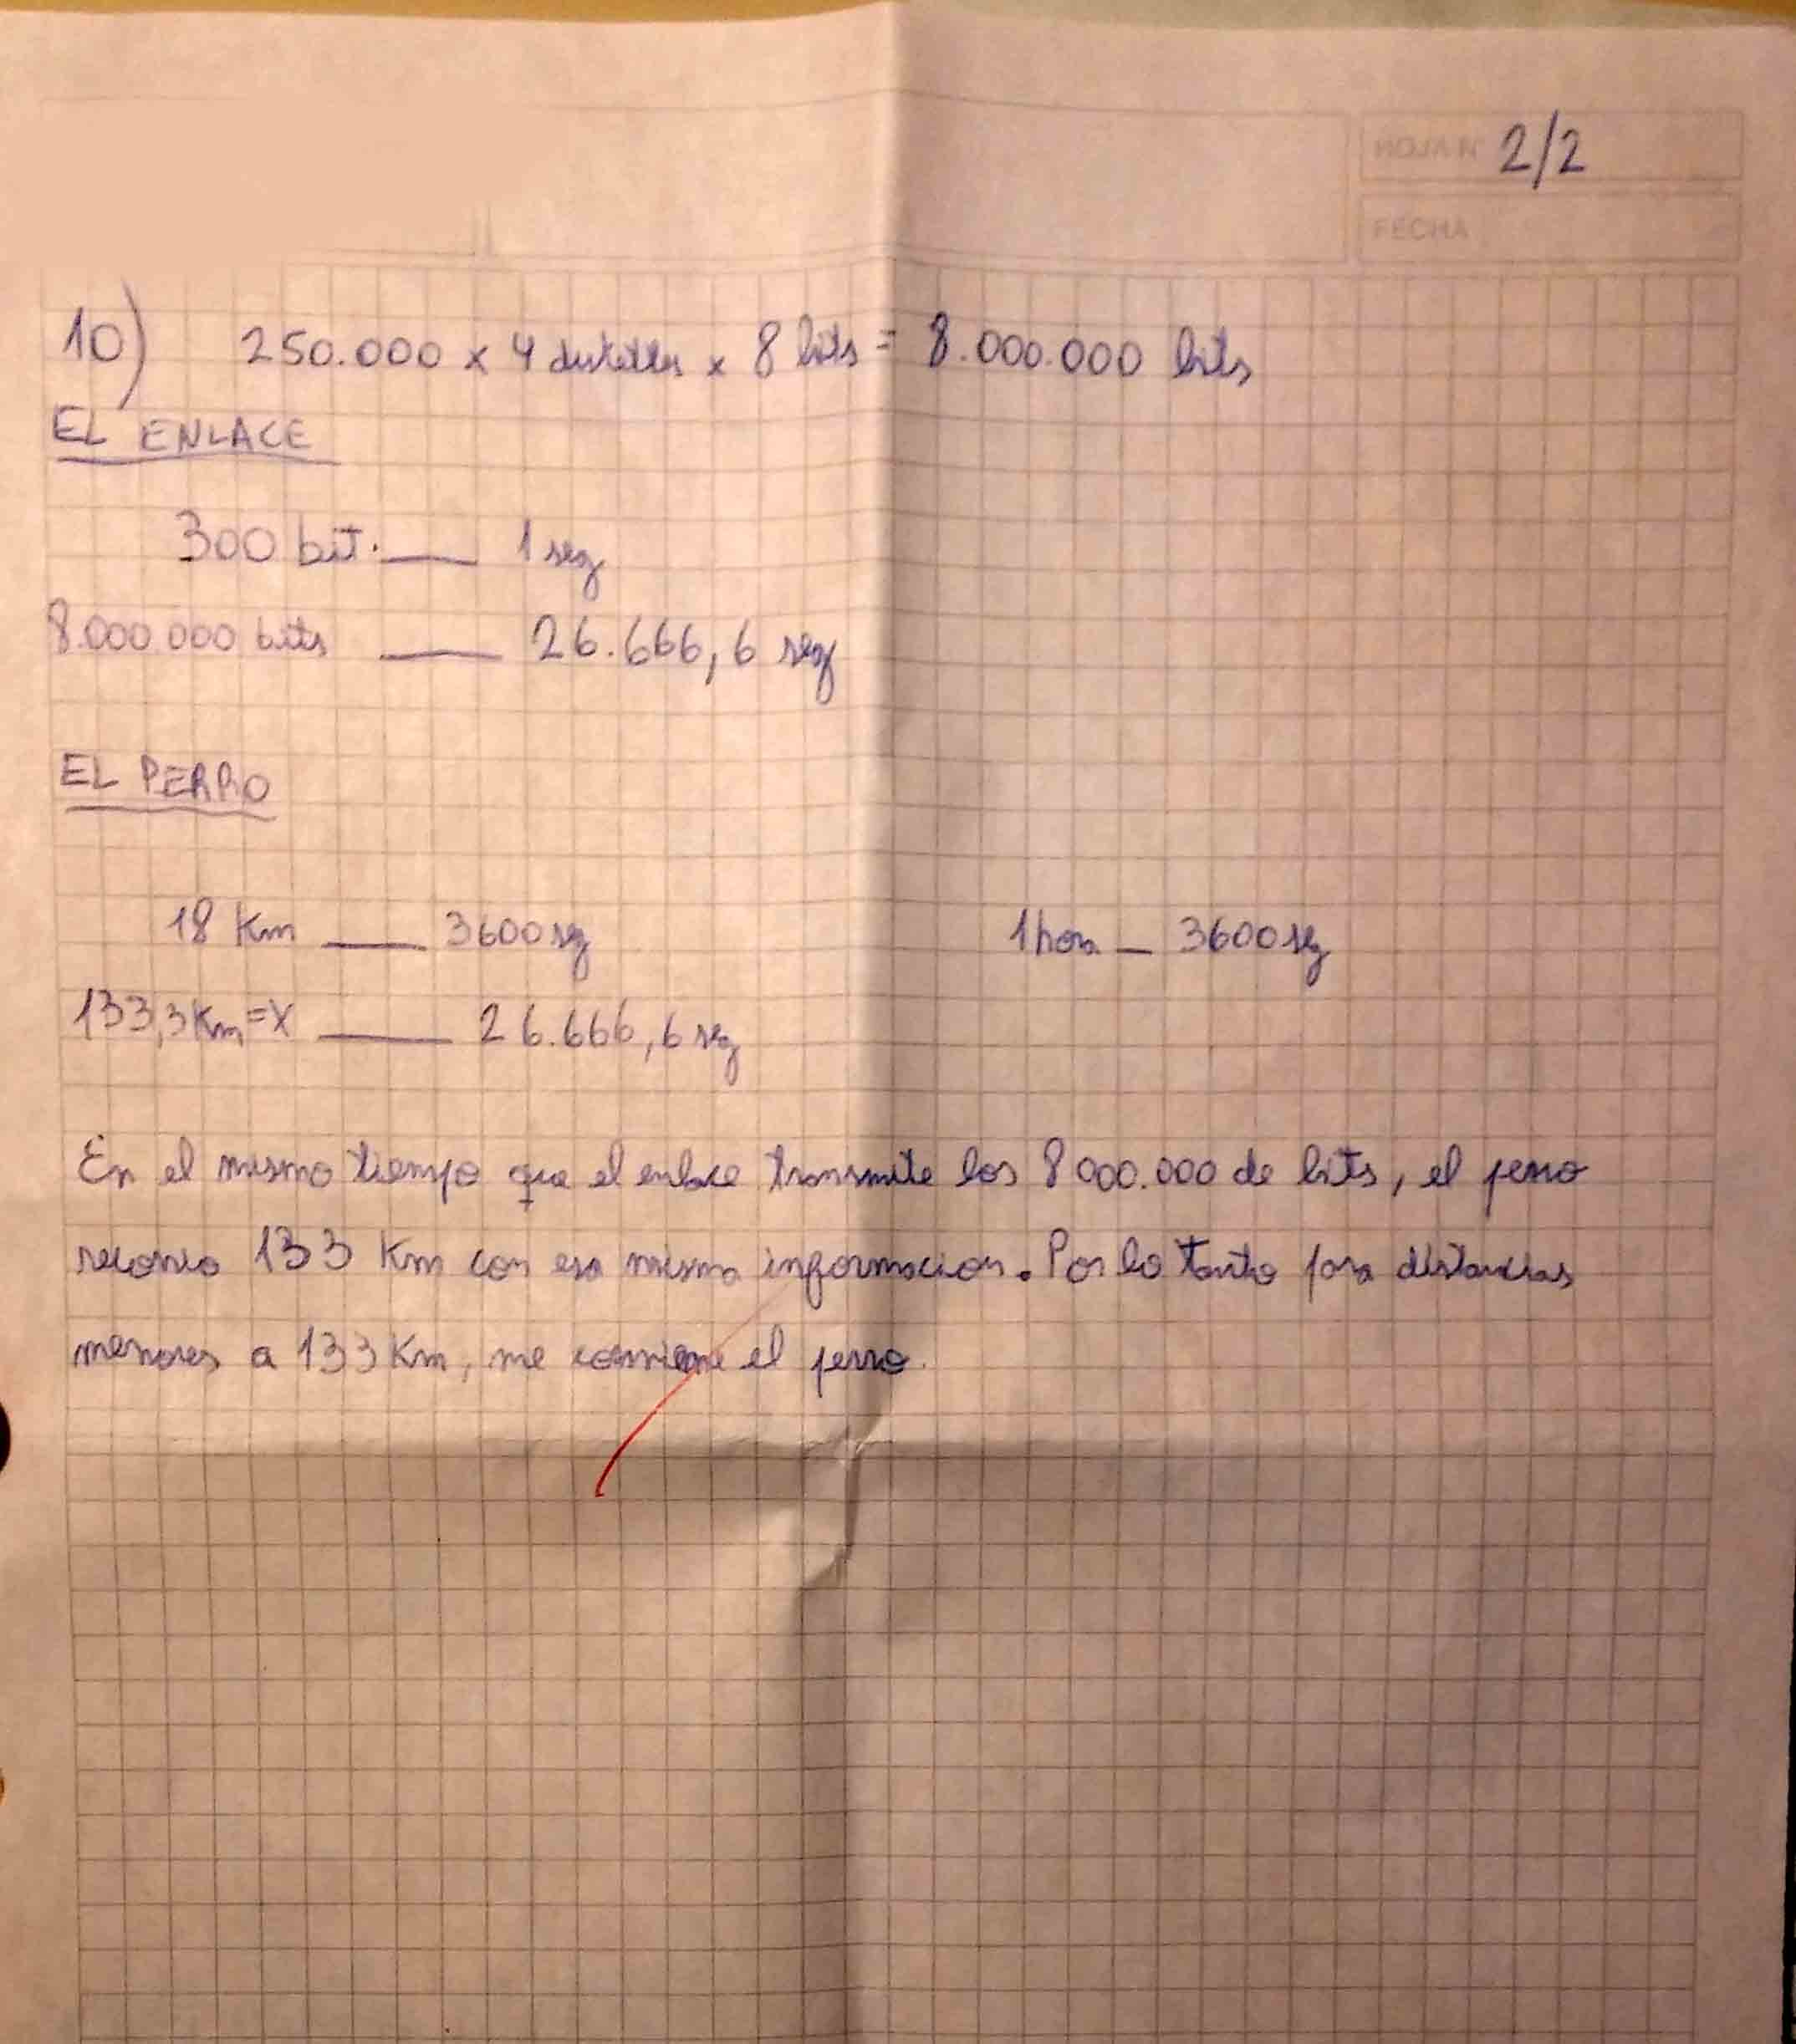 HOJA N° 2/2
FECHA
10) 250.000 x 4 diskettes x 8 bits = 8.000.000 bits
EL ENLACE
300 bit. — 1 seg
8.000.000 bits — 26.666,6 seg
EL PERRO
18 Km — 3600 seg 1 hora — 3600 seg
133,3 Km = X — 26.666,6 seg
En el mismo tiempo que el enlace transmite los 8 000.000 de bits, el perro
recorrio 133 Km con esa misma informacion. Por lo tanto para distancias
menores a 133 Km, me conviene el perro.